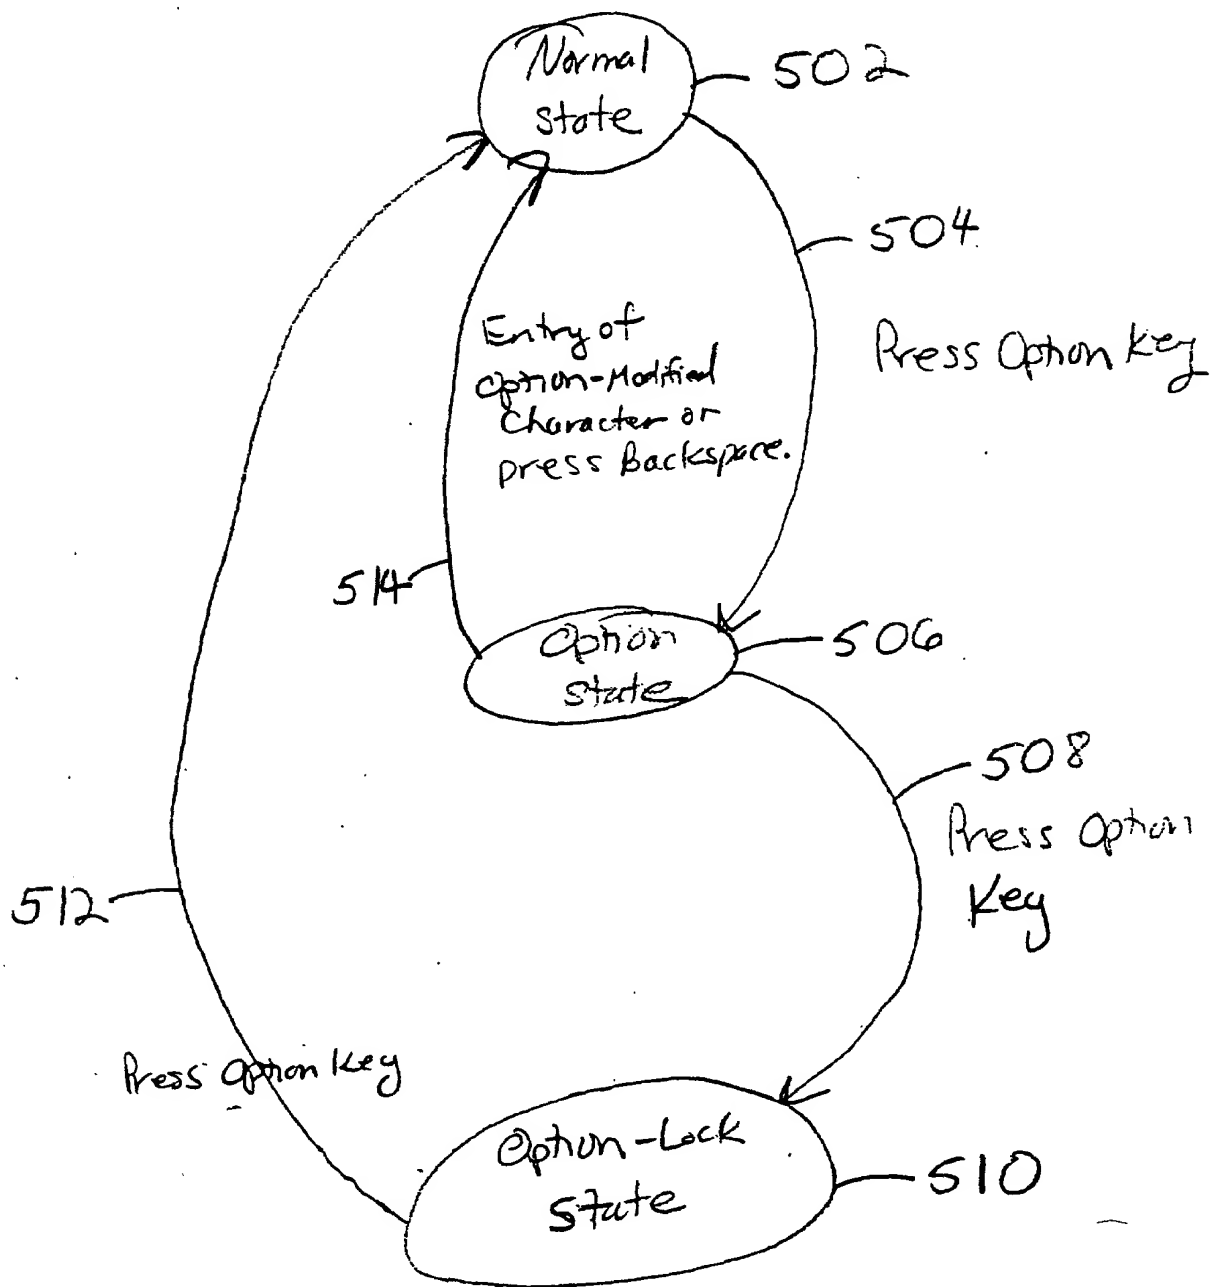 Normal
state
502
504
Press Option Key
Entry of
Option-Modified
Character or
press Backspace.
514
Option
state
506
508
Press Option
Key
512
Press Option Key
Option-Lock
State
510